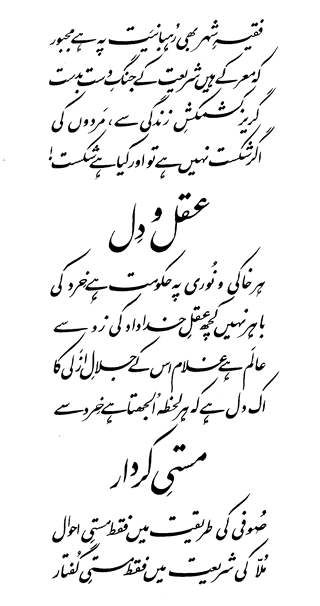 فقیہِ شہر بھی رُہبانیّت پہ ہے مجبور
کہ معرکے ہیں شریعت کے جنگِ دست بدست
گریز کشمکشِ زندگی سے، مَردوں کی
اگر شکست نہیں ہے تو اور کیا ہے شکست!
عقل و دِل
ہر خاکی و نُوری پہ حکومت ہے خرد کی
باہر نہیں کچھ عقلِ خداداد کی زد سے
عالَم ہے غلام اس کے جلالِ ازَلی کا
اک دل ہے کہ ہر لحظہ اُلجھتا ہے خرد سے
مستیِ کردار
صُوفی کی طریقت میں فقط مستیِ احوال
مُلّا کی شریعت میں فقط مستیِ گُفتار